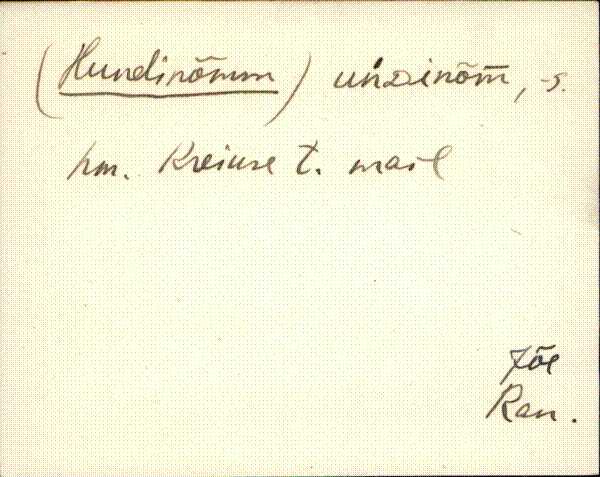 (Hundinõmm) unDinõm̄, -s.
hm. Kreiuse t. mail
Jõe
Ran.